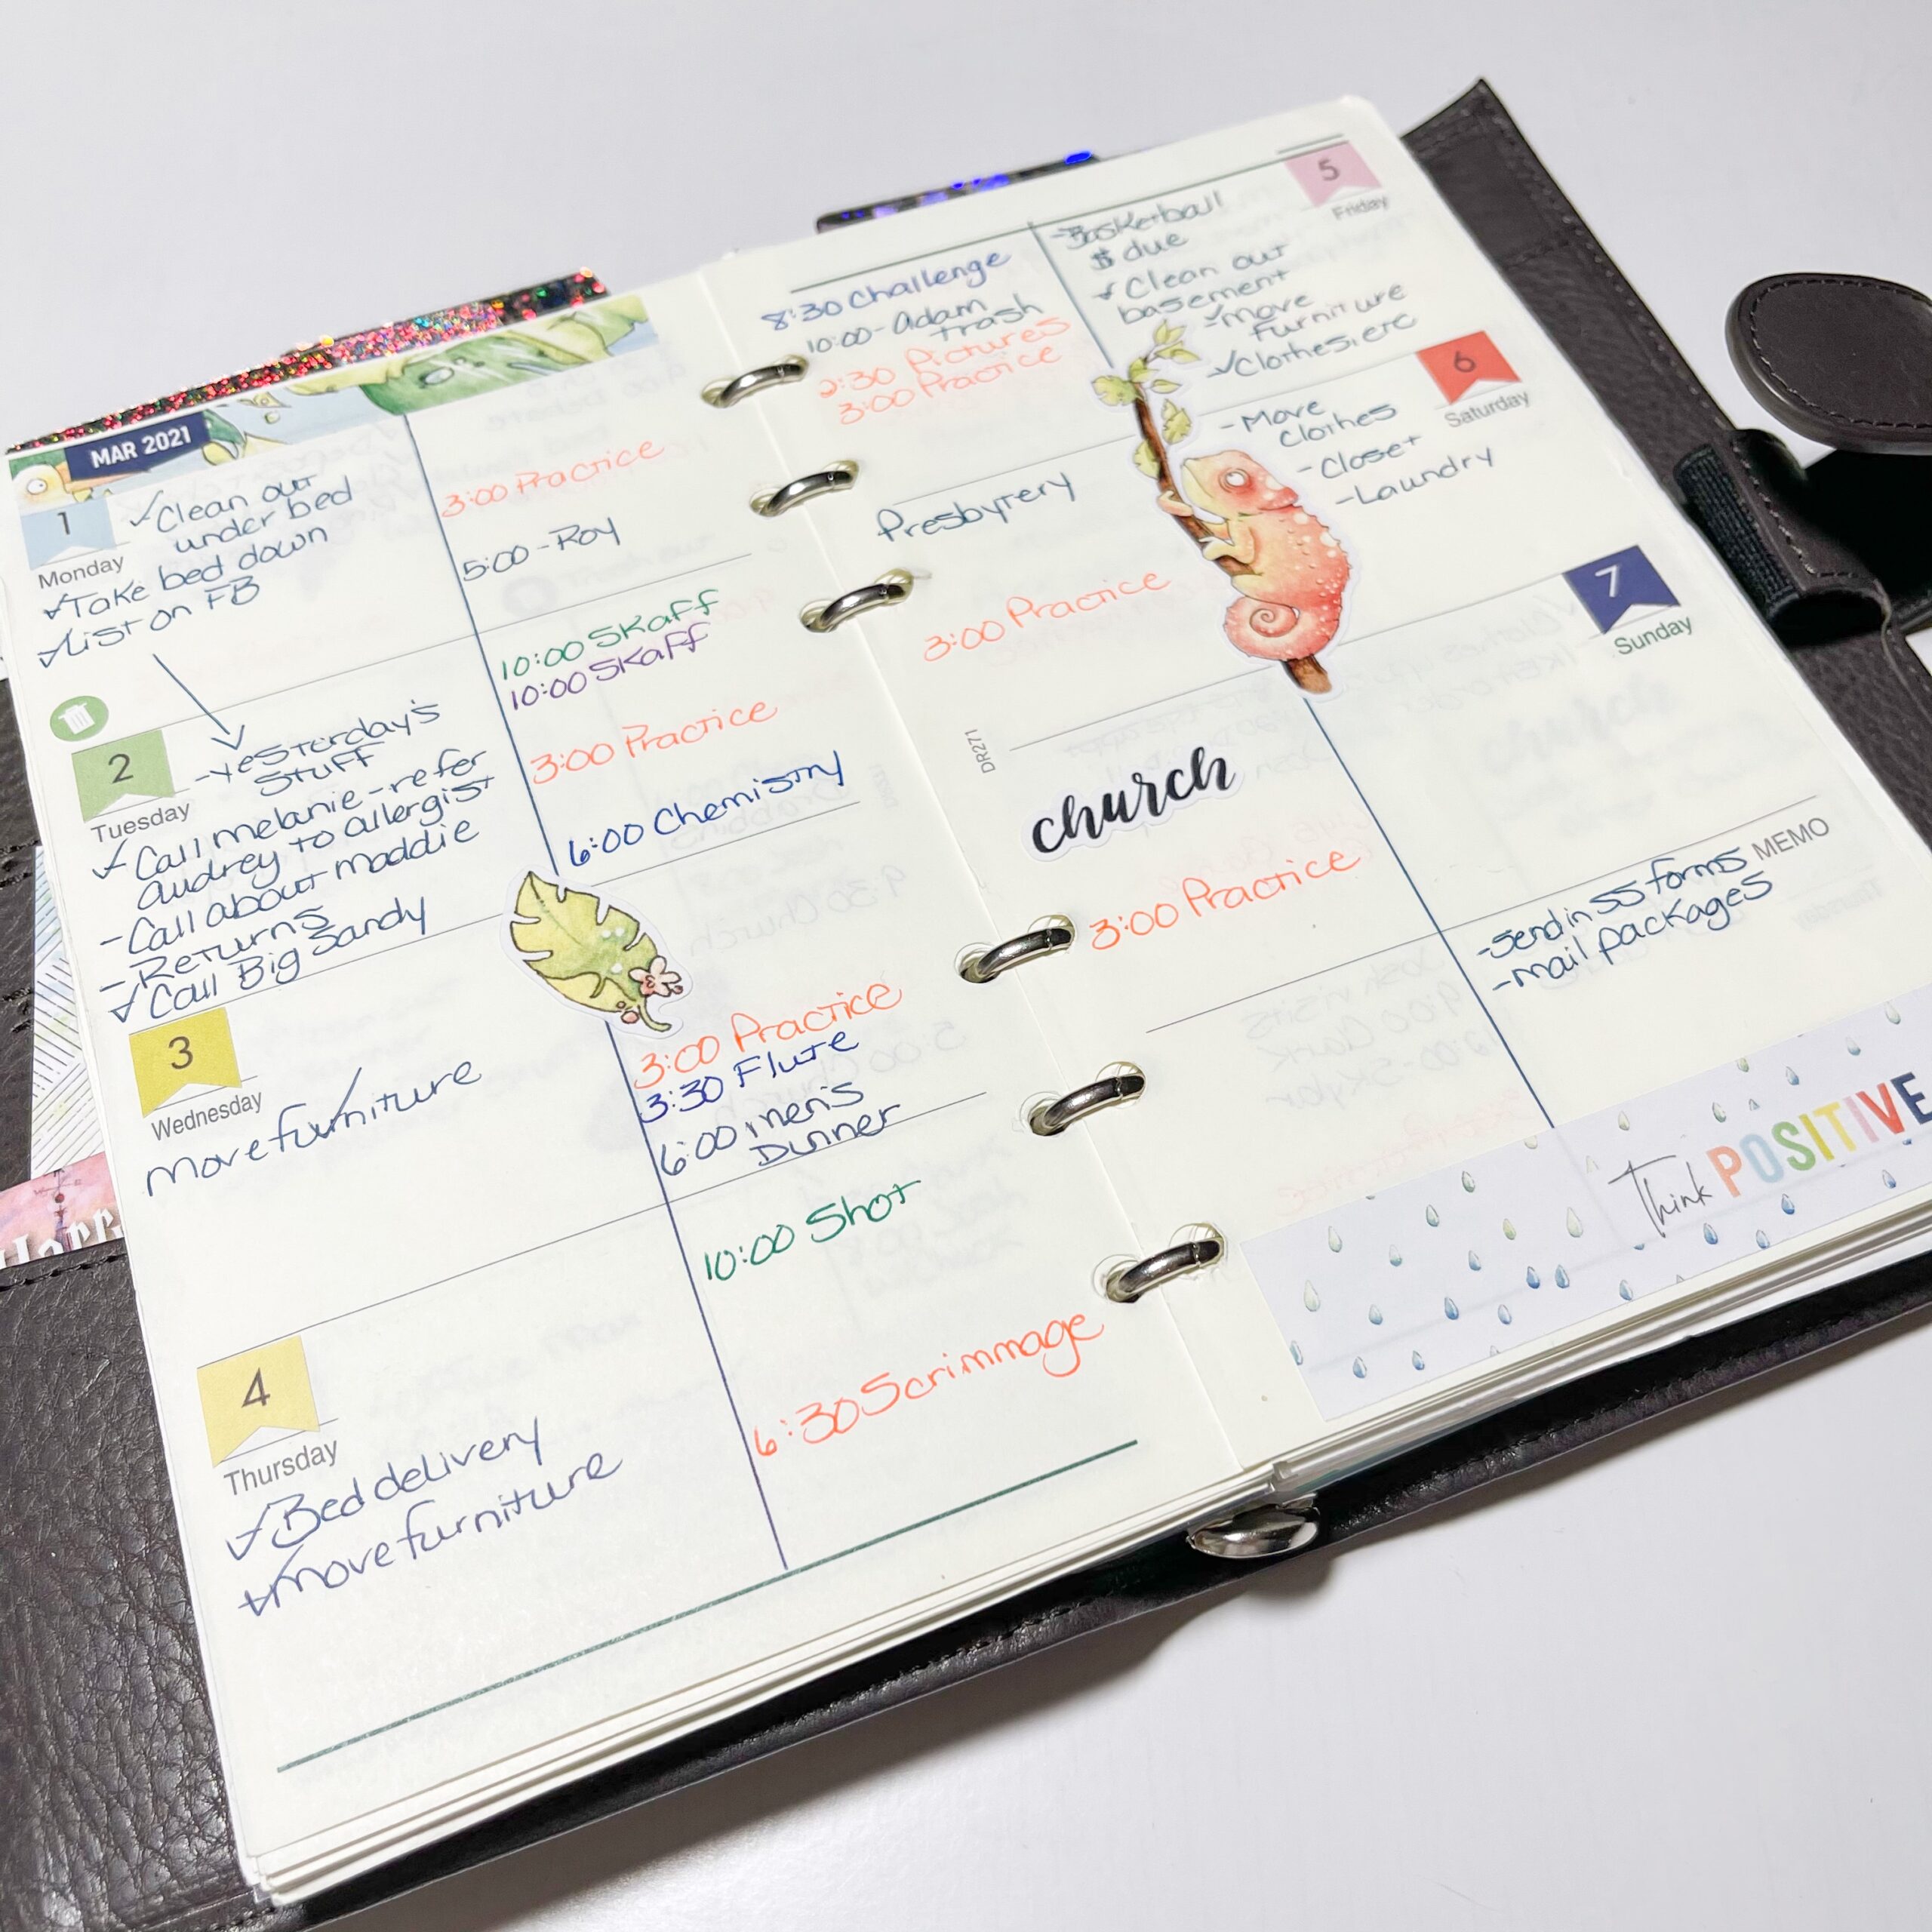 MAR 2021
1
Monday
Clean out
under bed
Take bed down
List on FB
3:00 Practice
5:00 - Roy
2
Tuesday
- Yesterday's
stuff
Call melanie - refer
Audrey to allergist
- Call about maddie
- Returns
Call Big Sandy
10:00 Skaff
10:00 Skaff
3:00 Practice
6:00 Chemistry
3
Wednesday
move furniture
3:00 Practice
3:30 Flute
6:00 men's
Dunner
4
Thursday
Bed delivery
move furniture
10:00 Shot
6:30 Scrimmage
8:30 Challenge
10:00 - Adam
trash
2:30 Pictures
3:00 Practice
5
Friday
- Basketball
$ due
Clean out
basement
- move
furniture
Clothes, etc
Presbytery
3:00 Practice
6
Saturday
- Move
Clothes
- Closet
- Laundry
DR271
church
3:00 Practice
7
Sunday
MEMO
- Send in SS forms
- mail packages
Think POSITIVE